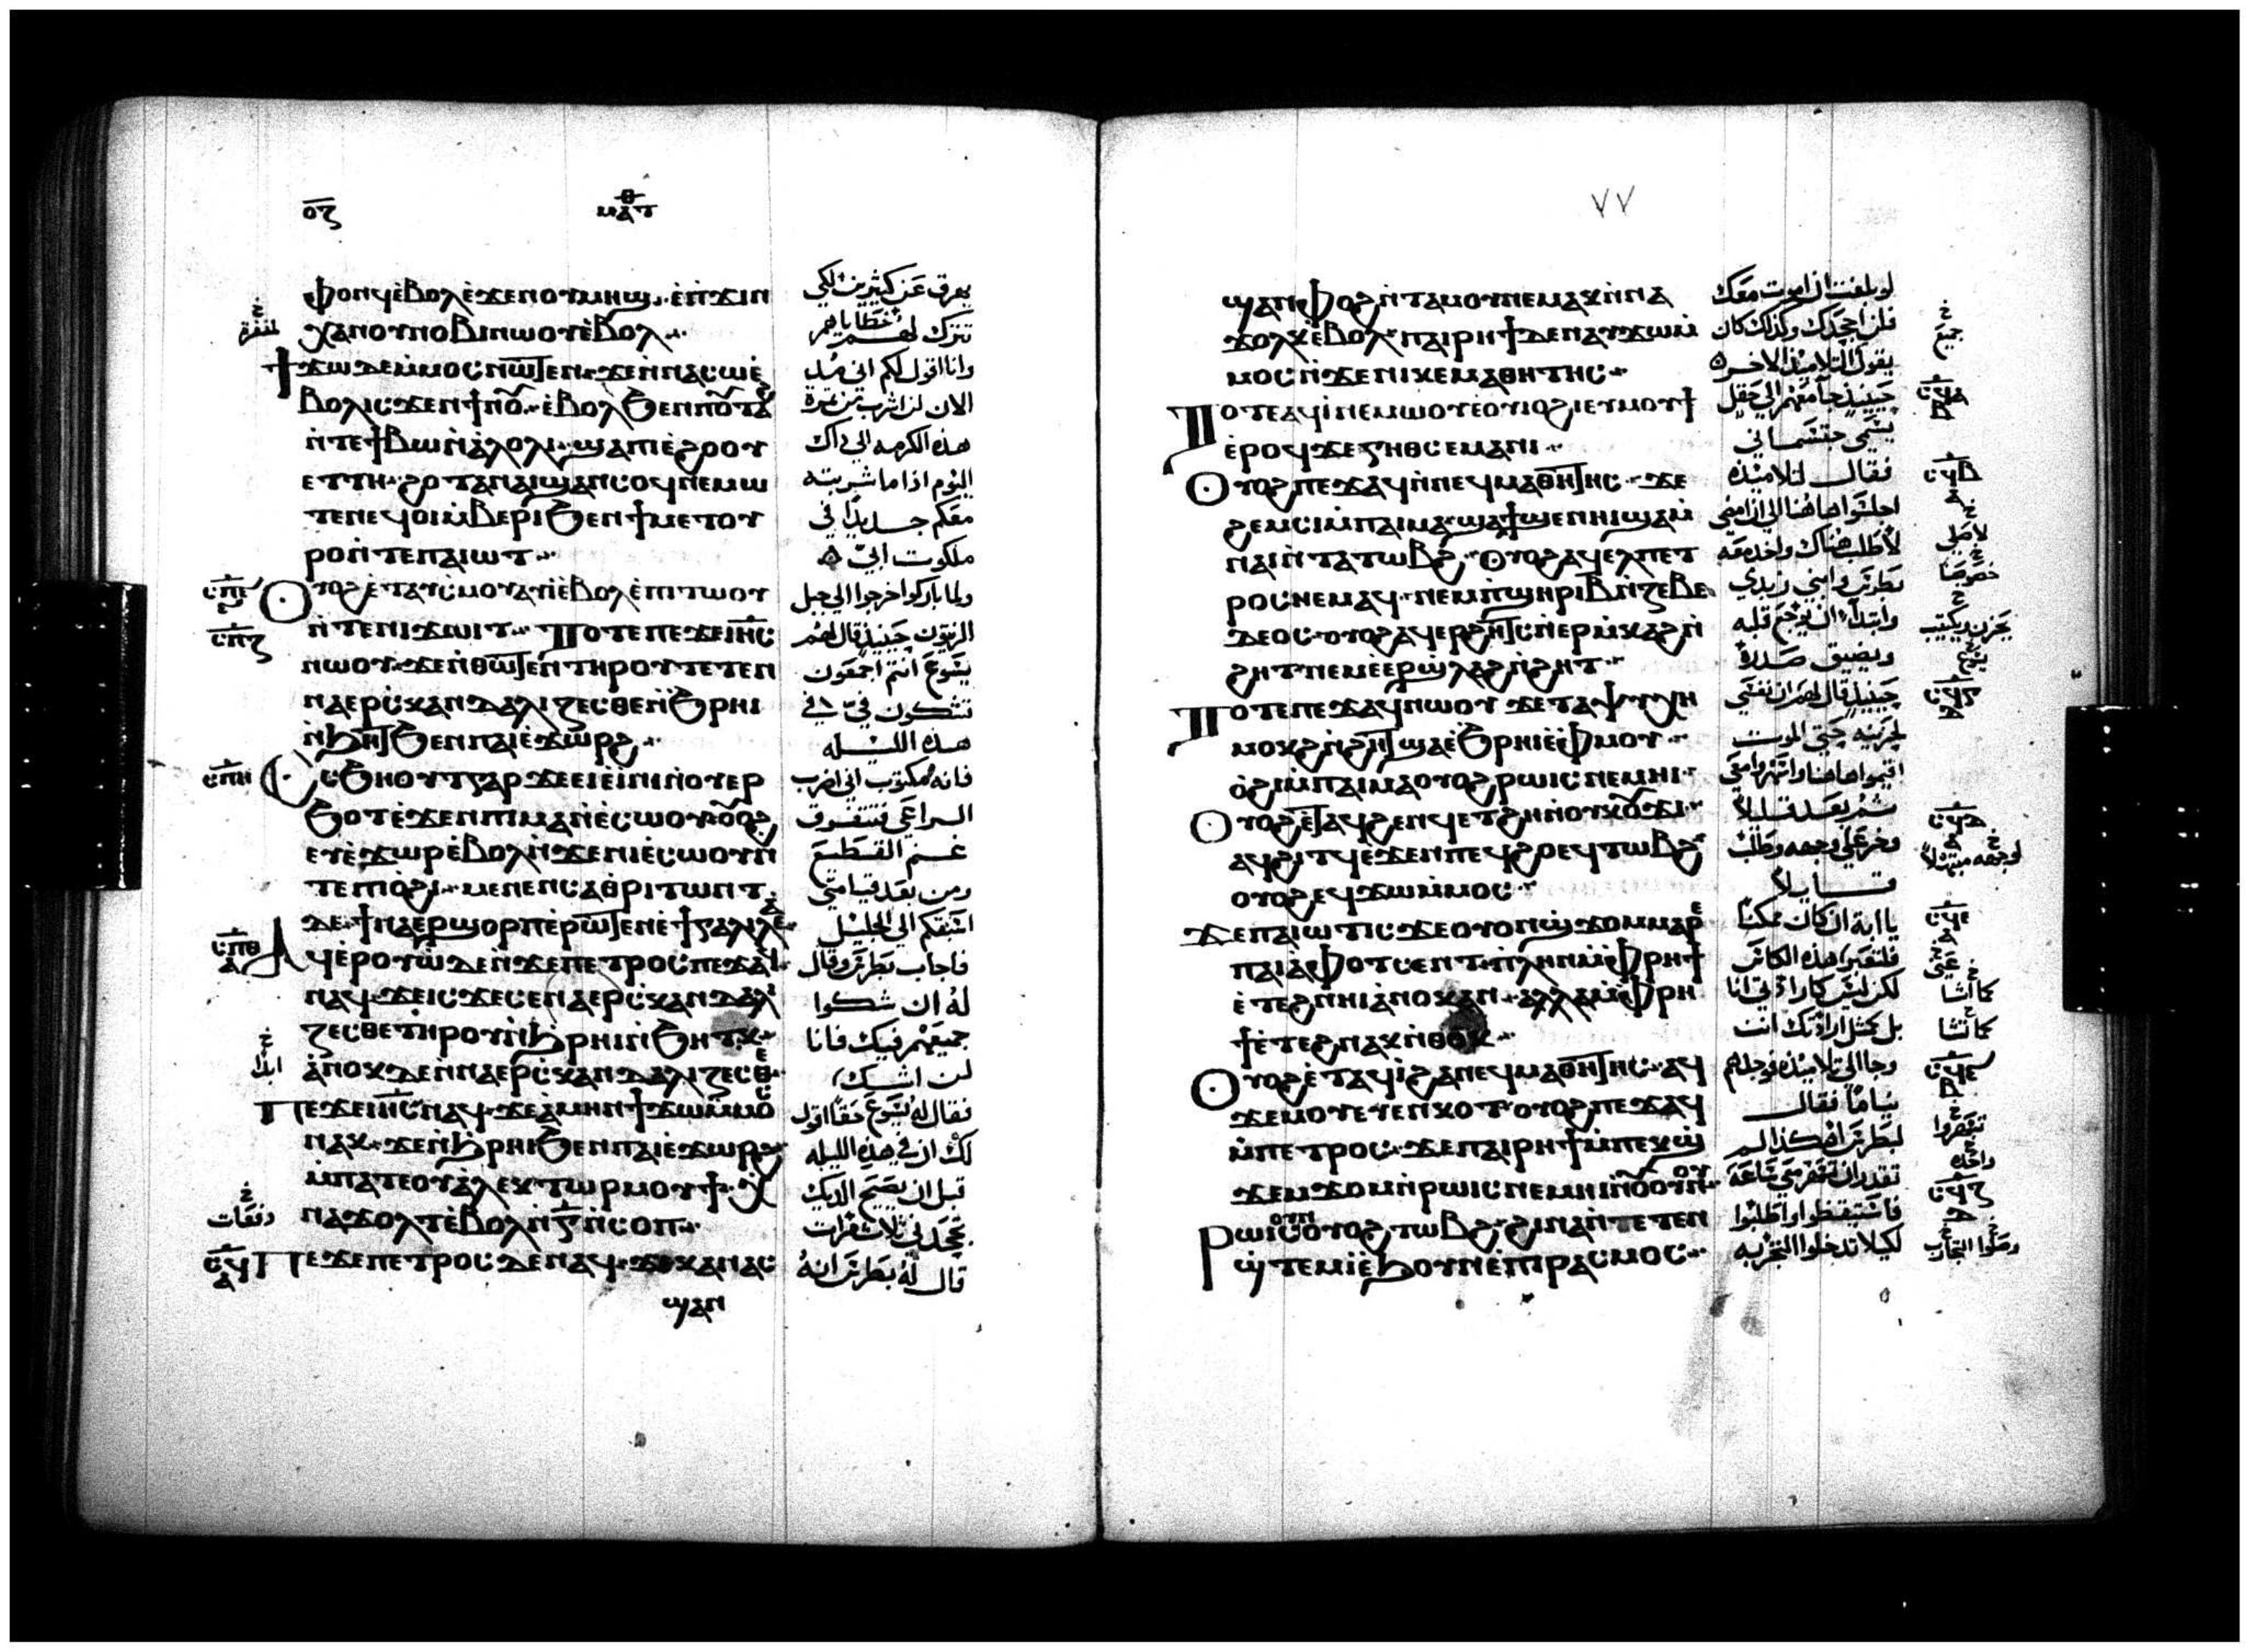 ⲟⲍ
ⲙⲁⲧⲑ
ⲫⲟⲛϥ ⲉⲃⲟⲗ ⲉϫⲉⲛ ⲟⲩⲙⲏϣ ⲉⲡϫⲓⲛ
ⲭⲁ ⲛⲟⲩⲛⲟⲃⲓ ⲛⲱⲟⲩ ⲉⲃⲟⲗ
ϯϫⲱ ⲇⲉ ⲙⲙⲟⲥ ⲛⲱⲧⲉⲛ ϫⲉ ⲛⲛⲁⲥⲱ ⲉ
ⲃⲟⲗ ⲓⲥϫⲉⲛ ϯⲛⲟⲩ ⲉⲃⲟⲗ ϧⲉⲛ ⲡⲟⲩⲧⲁϩ
ⲛⲧⲉ ϯⲃⲱ ⲛⲁⲗⲟⲗⲓ ϣⲁ ⲡⲓⲉϩⲟⲟⲩ
ⲉⲧⲧⲏ ϩⲟⲧⲁⲛ ⲁⲓϣⲁⲛⲥⲟϥ ⲛⲉⲙⲱ
ⲧⲉⲛ ⲉϥⲟⲓ ⲙⲃⲉⲣⲓ ϧⲉⲛ ϯⲙⲉⲧⲟⲩ
ⲣⲟ ⲛⲧⲉ ⲡⲁⲓⲱⲧ
ⲟⲩⲟϩ ⲉⲧⲁⲩⲥⲙⲟⲩ ⲁⲩⲓ ⲉⲃⲟⲗ ⲉⲡⲓⲧⲱⲟⲩ
ⲛⲧⲉ ⲛⲓϫⲱⲓⲧ ⲧⲟⲧⲉ ⲡⲉϫⲉ ⲓⲏⲥ
ⲛⲱⲟⲩ ϫⲉ ⲛⲑⲱⲧⲉⲛ ⲧⲏⲣⲟⲩ ⲧⲉⲧⲉⲛ
ⲛⲁⲉⲣⲥⲕⲁⲛⲇⲁⲗⲓⲍⲉⲥⲑⲉ ⲛϧⲣⲏⲓ
ⲛϧⲏⲧ ϧⲉⲛ ⲡⲁⲓⲉϫⲱⲣϩ
ⲥϧⲏⲟⲩⲧ ⲅⲁⲣ ϫⲉ ⲉⲓⲉⲓⲛⲓ ⲛⲟⲩⲉⲣ
ϧⲟⲧ ⲉϫⲉⲛ ⲡⲓⲙⲁⲛⲉⲥⲱⲟⲩ ⲟⲩⲟϩ
ⲉⲩⲉϫⲱⲣ ⲉⲃⲟⲗ ⲛϫⲉ ⲛⲓⲉⲥⲱⲟⲩ ⲛ
ⲧⲉ ⲡⲓⲟϩⲓ ⲙⲉⲛⲉⲛⲥⲁ ⲑⲣⲓⲧⲱⲛⲧ
ⲇⲉ ϯⲛⲁⲉⲣϣⲟⲣⲡ ⲉⲣⲱⲧⲉⲛ ⲉϯⲅⲁⲗⲓⲗⲉⲁ
ⲁϥⲉⲣⲟⲩⲱ ⲇⲉ ⲛϫⲉ ⲡⲉⲧⲣⲟⲥ ⲡⲉϫⲁϥ
ⲛⲁϥ ϫⲉ ⲓⲥϫⲉ ⲥⲉⲛⲁⲉⲣⲥⲕⲁⲛⲇⲁⲗⲓ
ⲍⲉⲥⲑⲉ ⲧⲏⲣⲟⲩ ⲛϩⲣⲏⲓ ⲛϧⲏⲧⲕ
ⲁⲛⲟⲕ ⲇⲉ ⲛⲛⲁⲉⲣⲥⲕⲁⲛⲇⲁⲗⲓⲍⲉⲥⲑⲉ
ⲡⲉϫⲉ ⲓⲏⲥ ⲛⲁϥ ϫⲉ ⲁⲙⲏⲛ ϯϫⲱ ⲙⲙⲟⲥ
ⲛⲁⲕ ϫⲉ ⲛϩⲣⲏⲓ ϧⲉⲛ ⲡⲁⲓⲉϫⲱⲣϩ
ⲙⲡⲁⲧⲉ ⲟⲩⲁⲗⲉⲕⲧⲱⲣ ⲙⲟⲩϯ ⲭ
ⲛⲁϫⲟⲗⲧ ⲉⲃⲟⲗ ⲛⲅ ⲛⲥⲟⲡ
ⲡⲉϫⲉ ⲡⲉⲧⲣⲟⲥ ⲇⲉ ⲛⲁϥ ϫⲉ ⲕⲁⲛ ⲁⲥ
ϣⲁⲛ
يعرق عن كثيرين لكي
تترك لهم خطاياهم
وانا اقول لكم اني من
الان لن اشرب من ثمرة
هذه الكرمه الي ذاك
اليوم اذا ما شربته
معكم جديدا في
ملكوت ابي
ولما باركوا خرجوا الي جبل
الزيتون حينيذ قال لهم
يسوع انتم اجمعون
تشكون في في
هذه الليله
فانه مكتوب اني اضرب
الراعي فتتفرق
غنم القطيع
ومن بعد قيامتي
اسبقكم الي الجليل
فاجاب بطرس وقال
له ان شكوا
جميعهم فيك فانا
لن اشك
فقال له يسوع حقا اقول
لك ان في هذه الليله
قبل ان يصيح الديك
تجحدني ثلاث مرات
قال له بطرس انه
٧٧
ϣⲁⲛⲫⲟϩ ⲛⲧⲁⲙⲟⲩ ⲛⲉⲙⲁⲕ ⲛⲛⲁ
ϫⲟⲗⲕ ⲉⲃⲟⲗ ⲡⲁⲓⲣⲏϯ ⲇⲉ ⲛⲁⲩϫⲱ ⲙ
ⲙⲟⲥ ⲛϫⲉ ⲛⲓⲕⲉⲙⲁⲑⲏⲧⲏⲥ
ⲧⲟⲧⲉ ⲁϥⲓ ⲛⲉⲙⲱⲟⲩ ⲉⲟⲩⲓⲟϩⲓ ⲉⲩⲙⲟⲩϯ
ⲉⲣⲟϥ ϫⲉ ⲅⲏⲑⲥⲉⲙⲁⲛⲓ
ⲟⲩⲟϩ ⲡⲉϫⲁϥ ⲛⲛⲉϥⲙⲁⲑⲏⲧⲏⲥ ϫⲉ
ϩⲉⲙⲥⲓ ⲙⲡⲁⲓⲙⲁ ϣⲁϯϣⲉⲛⲏⲓ ϣⲁ ⲙ
ⲛⲁⲓ ⲛⲧⲁⲧⲱⲃϩ ⲟⲩⲟϩ ⲁϥⲉⲗ ⲡⲉⲧ
ⲣⲟⲥ ⲛⲉⲙⲁϥ ⲛⲉⲙ ⲡϣⲏⲣⲓ ⲃ ⲛⲍⲉⲃⲉ
ⲇⲉⲟⲥ ⲟⲩⲟϩ ⲁϥⲉⲣϩⲏⲧⲥ ⲛⲉⲣⲙⲕⲁϩ ⲛ
ϩⲏⲧ ⲛⲉⲙ ⲉⲉⲣϣⲗⲁϩ ⲛϩⲏⲧ
ⲧⲟⲧⲉ ⲡⲉϫⲁϥ ⲛⲱⲟⲩ ϫⲉ ⲧⲁⲯⲩⲭⲏ
ⲙⲟⲕϩ ⲛϩⲏⲧ ϣⲁ ⲉϧⲣⲏⲓ ⲉⲫⲙⲟⲩ
ⲟϩⲓ ⲙⲡⲁⲓⲙⲁ ⲟⲩⲟϩ ⲣⲱⲓⲥ ⲛⲉⲙⲏⲓ
ⲟⲩⲟϩ ⲉⲧⲁϥϩⲉⲛϥ ⲉⲧϩⲏ ⲛⲟⲩⲕⲟⲩϫⲓ
ⲁϥϩⲓⲧϥ ⲉϫⲉⲛ ⲡⲉϥϩⲟ ⲉϥⲧⲱⲃϩ
ⲟⲩⲟϩ ⲉϥϫⲱ ⲙⲙⲟⲥ
ϫⲉ ⲡⲁⲓⲱⲧ ⲓⲥϫⲉ ⲟⲩⲟⲛ ϣϫⲟⲙ ⲙⲁⲣⲉ
ⲡⲁⲓⲁⲫⲟⲧ ⲥⲉⲛⲧ ⲡⲗⲏⲛ ⲙⲫⲣⲏϯ
ⲉⲧⲉϩⲛⲏⲓ ⲁⲛⲟⲕ ⲁⲛ ⲁⲗⲗⲁ ⲙⲫⲣⲏ
ϯ ⲉⲧⲉϩⲛⲁⲕ ⲛⲑⲟⲕ
ⲟⲩⲟϩ ⲉⲧⲁϥⲓ ϩⲁ ⲛⲉϥⲙⲁⲑⲏⲧⲏⲥ ⲁϥ
ϫⲉⲙⲟⲩ ⲉⲩⲉⲛⲕⲟⲧ ⲟⲩⲟϩ ⲡⲉϫⲁϥ
ⲙⲡⲉⲧⲣⲟⲥ ϫⲉ ⲡⲁⲓⲣⲏϯ ⲙⲡⲉⲕϣ
ϫⲉⲙϫⲟⲙ ⲛⲣⲱⲓⲥ ⲛⲉⲙⲏⲓ ⲛⲟⲩⲟⲩⲛⲟⲩ
ⲣⲱⲓⲥ ⲟⲩⲛ ⲟⲩⲟϩ ⲧⲱⲃϩ ϩⲓⲛⲁ ⲛⲧⲉⲧⲉⲛ
ϣⲧⲉⲙⲓ ⲉϧⲟⲩⲛ ⲉⲡⲓⲣⲁⲥⲙⲟⲥ
لو بلغت ان اموت معك
فلن اجحدك وكذلك كان
يقول التلاميذ الاخر
حينيذ جا معهم الي حقل
يسمي جتسماني
فقال لتلاميذه
اجلسوا هاهنا الي ان امضي
لاطلب هناك واخذ معه
بطرس وابني زبدي
وابتدا ان يوجع قلبه
ويضيق صدره
حينيذ قال لهم ان نفسي
لحزينه حتي الموت
اقيموا هاهنا واسهروا معي
ثم بعد قليلا
وخر علي وجهه وطلب
قايلا
يا ابة ان كان ممكنا
فلتعبر هذه الكاس
لكن ليس كارادتي انا
بل كمثل ارادتك انت
وجا الي تلاميذه فوجدهم
نياما فقال
لبطرس اهكذا لم
تقدر ان تسهر معي ساعة
فاستيقظوا واطلبوا
لكيلا تدخلوا التجربه